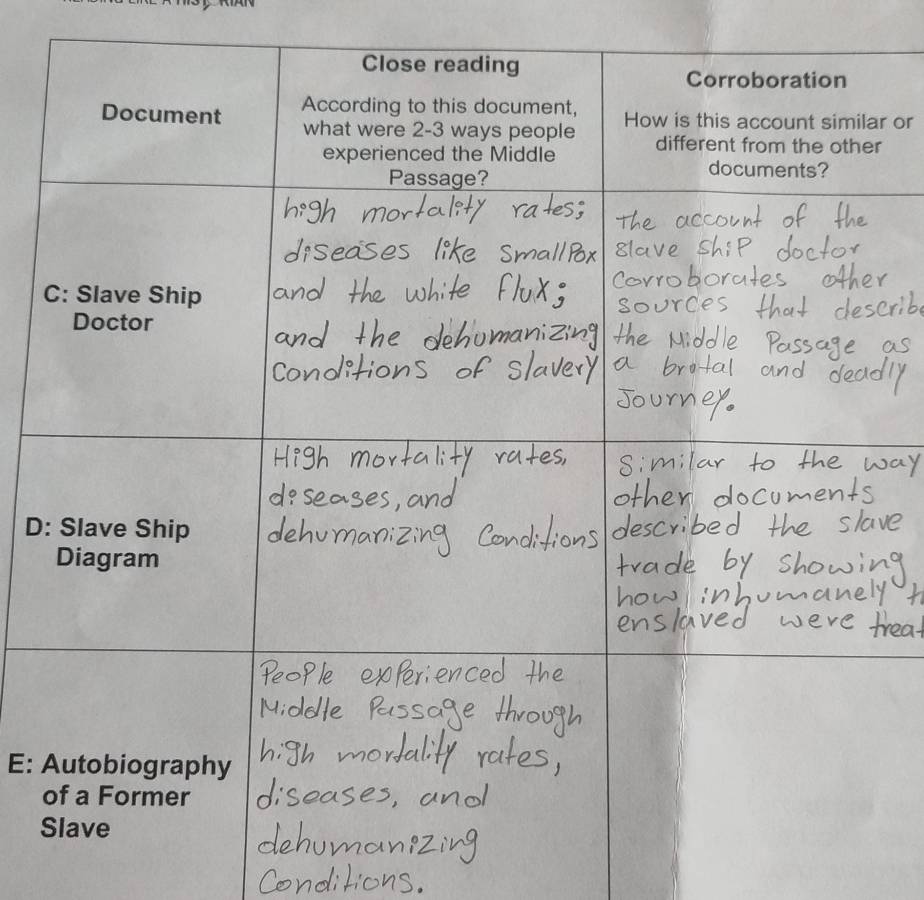 Document
Close reading
According to this document,
what were 2-3 ways people
experienced the Middle
Passage?
Corroboration
How is this account similar or
different from the other
documents?
C: Slave Ship
Doctor
high mortality rates;
diseases like smallpox
and the white flux;
and the dehumanizing
conditions of slavery
The account of the
slave ship doctor
corroborates other
sources that describe
the Middle Passage as
a brutal and deadly
Journey.
D: Slave Ship
Diagram
High mortality rates,
diseases, and
dehumanizing Conditions
Similar to the way
other documents
described the slave
trade by showing
how inhumanely
enslaved were
E: Autobiography
of a Former
Slave
People experienced the
Middle Passage through
high mortality rates,
diseases, and
dehumanizing
Conditions.